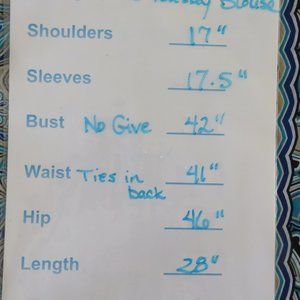 Blouse
Shoulders 17"
Sleeves 17.5"
Bust No Give 42"
Waist Ties in back 41"
Hip 46"
Length 28"